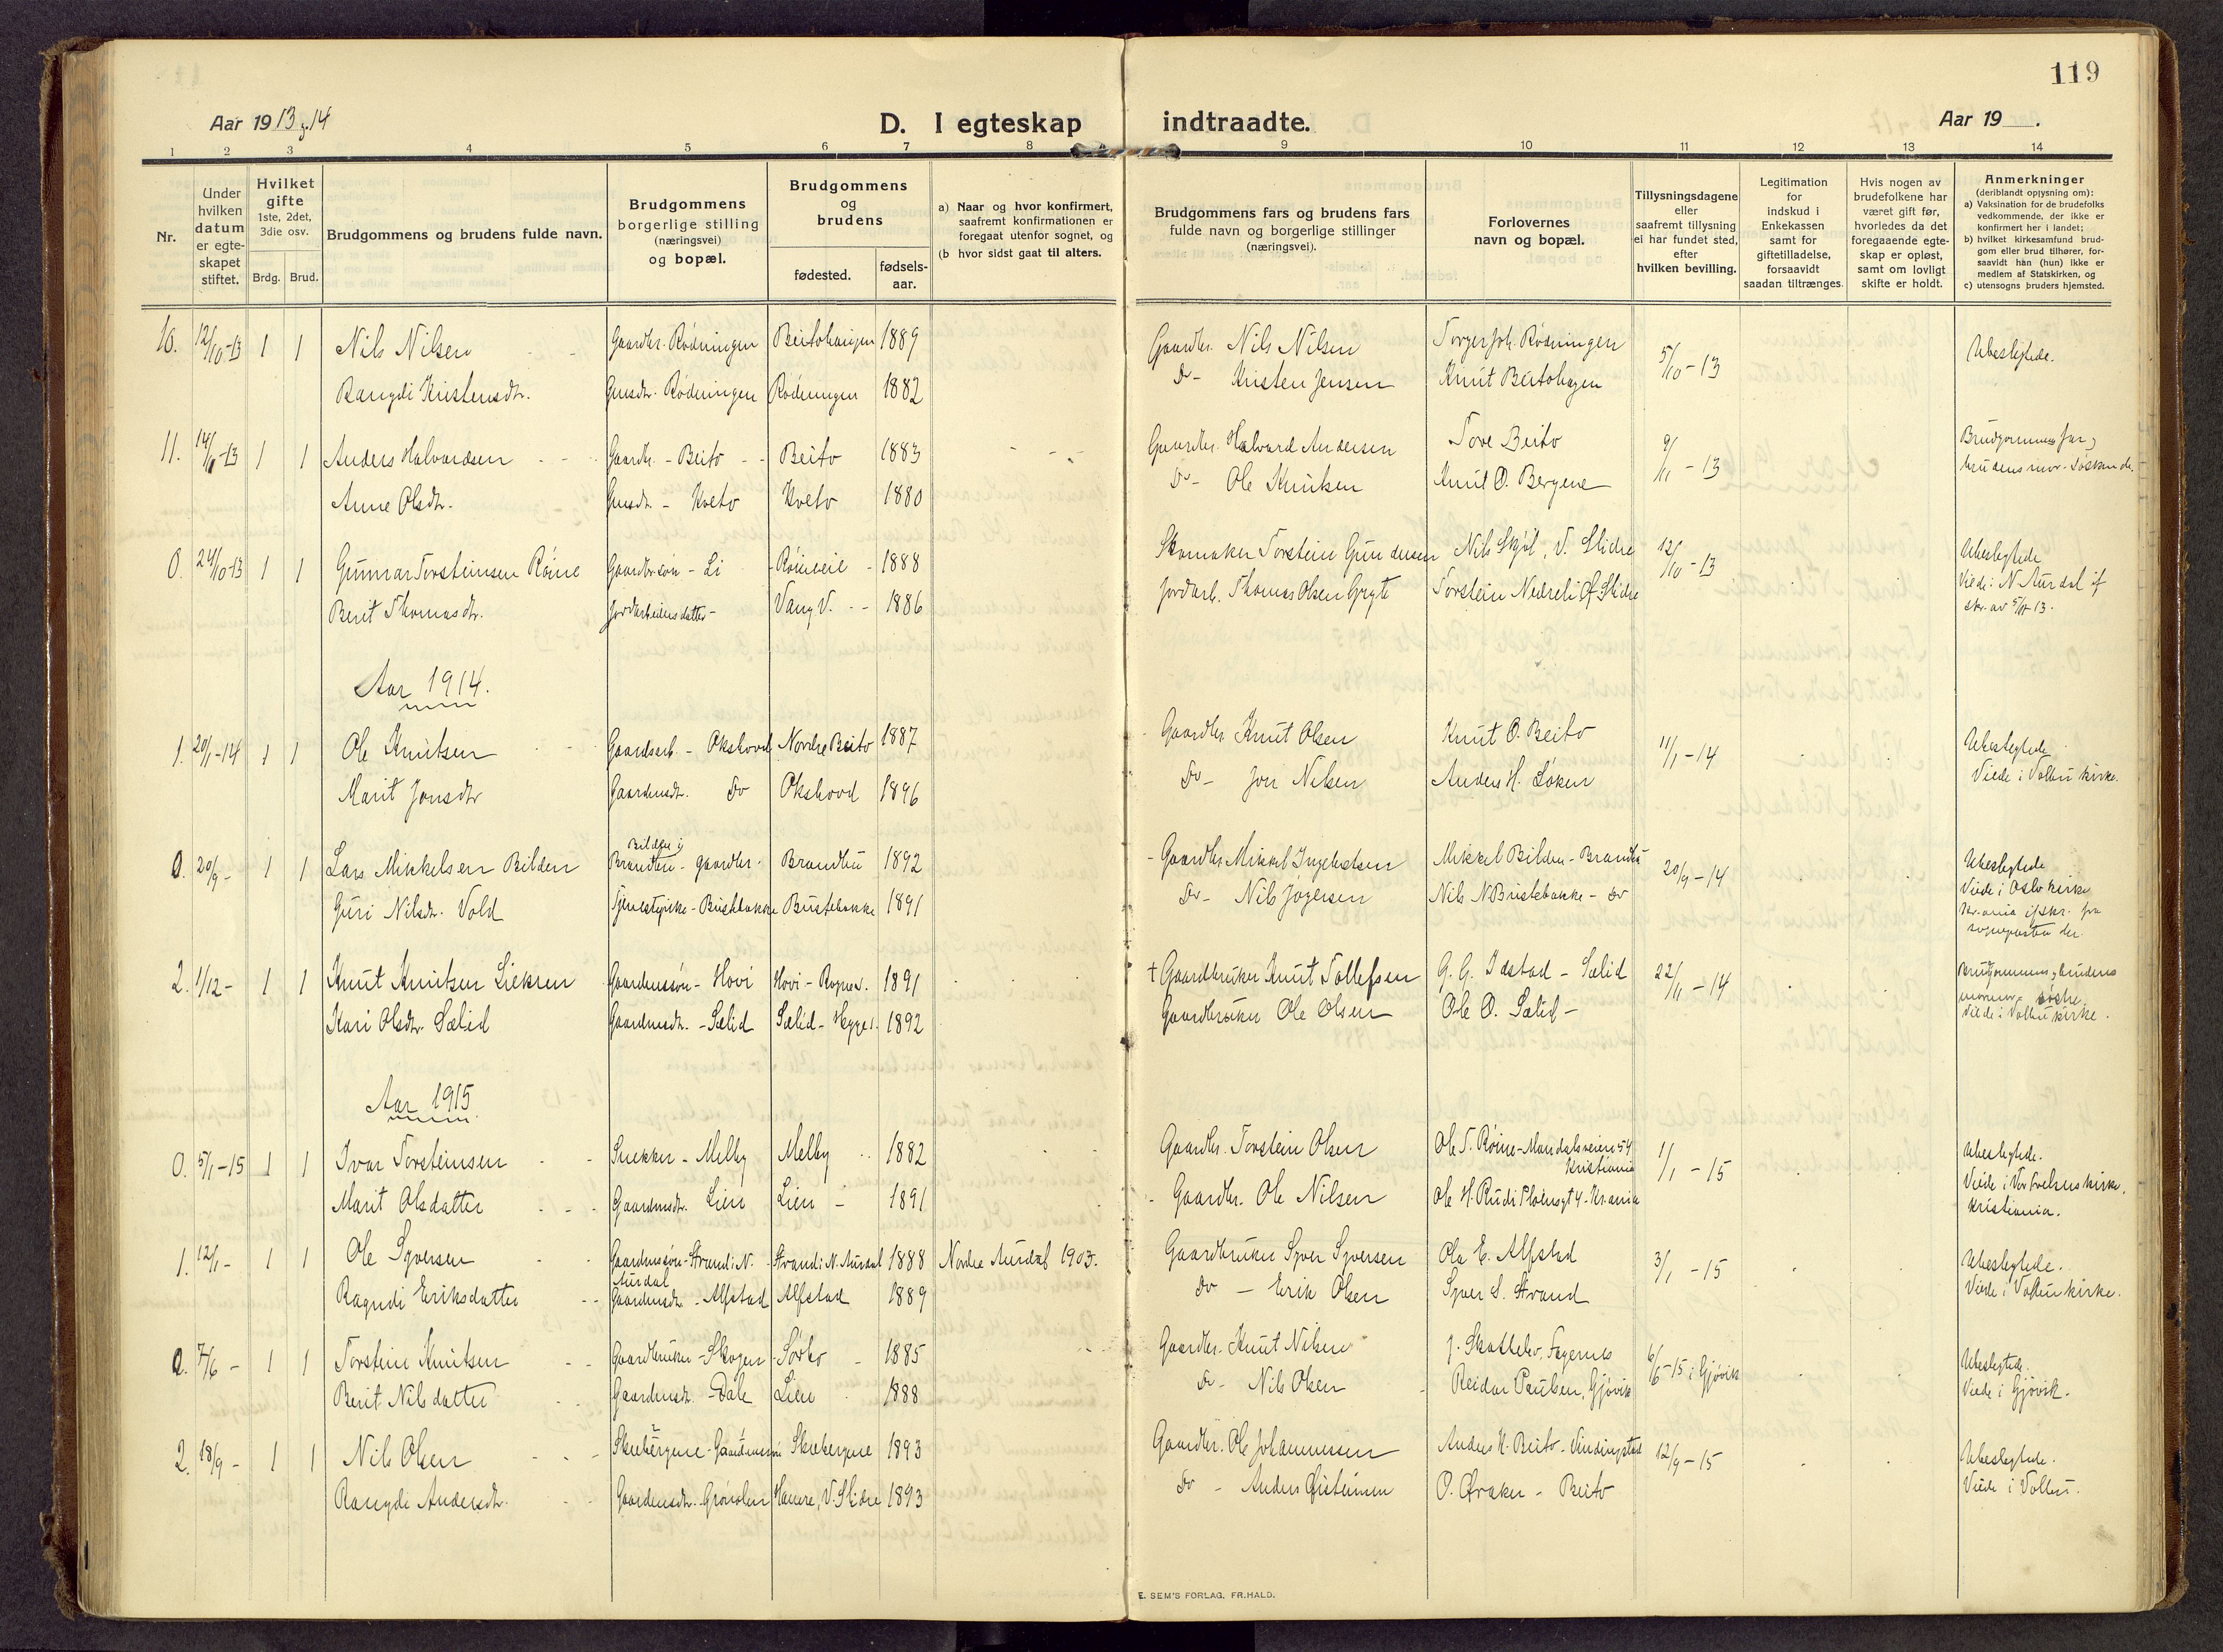 119
Aar 1913 og 14
D. I egteskap indtraadte.
Aar 19 .
1 2 3 4 5 6 7 8 9 10 11 12 13 14
Nr.
Under hvilken datum er egteskapet stiftet.
Hvilket gifte
1ste, 2det, 3die osv.
Brdg. Brud.
Brudgommens og brudens fulde navn.
Brudgommens borgerlige stilling (næringsvei) og bopæl.
Brudgommens og brudens
fødested. fødsels-aar.
a) Naar og hvor konfirmert, saafremt konfirmationen er foregaat utenfor sognet, og
(b hvor sidst gaat til alters.
Brudgommens fars og brudens fars fulde navn og borgerlige stillinger (næringsvei).
Forlovernes navn og bopæl.
Tillysningsdagene eller saafremt tillysning ei har fundet sted, efter hvilken bevilling.
Legitimation for indskud i Enkekassen samt for giftetilladelse, forsaavidt saadan tiltrænges.
Hvis nogen av brudefolkene har været gift før, hvorledes da det foregaaende egteskap er opløst, samt om lovligt skifte er holdt.
Anmerkninger
(deriblandt opłysning om):
a) Vaksination for de brudefolks vedkommende, der ikke er konfirmert her i landet;
b) hvilket kirkesamfund brudgom eller brud tilhører, forsaavidt han (hun) ikke er medlem af Statskirken, og
c) utensogns bruders hjemsted.
10. 12/10-13 1 1 Nils Nilsen Gaardbr. Rødningen Beitohaugen 1889 Gaardbr. Nils Nilsen Torger Joh. Rødningen 5/10-13 Ubeslegtede.
Rangdi Kristensdtr. Gmsdtr. Rødningen Rødningen 1882 Do- Kristen Jensen Knut Beitohagen
11. 14/11-13 1 1 Anders Halvordsen Gaardbr. - Beito Beito 1883 Gaardbr. Halvard Andersen Tore Beito 9/11-13 Brudgommens far og
Anne Olsdtr. Gmsdtr. - Kveto Kveto 1880 Do- Ole Knutsen Knut O. Bergene brudens mor - søskende.
0. 24/10-13 1 1 Gunnar Torsteinsen Røine Gaardbr.søn - Li 1888 Skomaker Torstein Gundersen Nils Skjøl, V. Slidre 12/10-13 Ubeslegtede
Berit Thomasdtr. Jordarbeidersdatter - Vang V. 1886 Jordarb. Thomas Olsen Torstein Nedreli Ø. Slidre Viede i N. Aurdal if. skr. av
Aar 1914.
1. 20/1-14 1 1 Ole Knutsen Gaardsarb. - Okshovd Nordre Beito 1887 Gaardbr. Knut Olsen Knut O. Beito 11/1-14 Ubeslegtede
Marit Jonsdtr Gaardmsdtr. Do Okshovd 1896 Do- Jon Nilsen Anders H. Løken Viede i Volbu kirke.
0. 20/9- 1 1 Lars Mikkelsen Bilden Bilden i Brandbu - gaardbr. Brandbu 1892 Gaardbr. Mikkel Ingebretsen Mikkel Bilden - Brandbu 20/9-14 Ubeslegtede
Guri Nilsdtr. Vold Tjenestepike - Bustebakke Bustebakke 1891 Do- Nils Jøgersen Nils N. Bustebakke - do Viede i Oslo kirke
Kr.ania if. skr. fra
sogneprsten der.
2. 1/12- 1 1 Knut Knutsen Liekren Gaardmssøn - Hovi Hovi - Rogne s. 1891 + Gaardbruker Knut Tollefsen G. G. Idstad - Sælid 22/11-14 Brudgommens og brudens
Kari Olsdtr. Sælid Gaardmsdtr. - Sælid Sælid - Hegge s. 1892 Gaardbruker Ole Olsen Ole O. Sælid - mormor - søstre.
Viede i Volbu kirke.
Aar 1915.
0. 5/1-15 1 1 Ivar Torsteinsen Snekker - Melby Melby 1882 Gaardbr. Torstein Olsen Ole T. Røine - Mandalsveien 54 Kristiania 1/1-15 Ubeslegtede.
Marit Olsdatter Gaardmsdtr. Lien Lien 1891 Gaardbr. Ole Nilsen Ole H. Rudi Thoensgt 4 - Kr.ania Viede i Vor frelsers kirke,
Kristiania.
1. 12/1- 1 1 Ole Syversen Gaardmssøn - Strand i N. Aurdal Strand i N. Aurdal 1888 Nordre Aurdal 1903. Gaardbruker Syver Syversen Ole E. Alfstad 3/1-15 Ubeslegtede.
Ragndi Eriksdatter Gaardmsdtr. - Alfstad Alfstad 1889 Do - Erik Olsen Syver S. Strand Viede i Volbu kirke.
0. 7/6- 1 1 Torstein Knutsen Gaardbruker - Skogen Sørbo 1885 Gaardbr. Knut Nilsen J. Skattebo, Fagernes 6/6-15 i Gjøvik Ubeslegtede.
Berit Nilsdatter Gaardmsdtr. - Dale Lien 1888 Do- Nils Olsen Reidar Paulsen, Gjøvik Viede i Gjøvik.
2. 18/9- 1 1 Nils Olsen Skrebergene - Gaardmssøn Skrebergene 1893 Gaardbr. Ole Johannessen Anders K. Beito - Vindingstad 12/9-15 Ubeslegtede.
Rangdi Andersdtr. Gaardmsdtr. - Grønolen Hamre, V. Slidre 1893 Do - Anders Øisteinsen O. Øraker - Beito Viede i Volbu.
E. SEM'S FORLAG, FR.HALD.